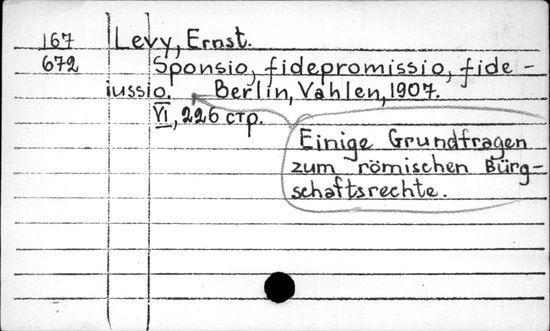 167 Levy, Ernst.
672 Sponsio, fidepromissio, fide-
iussio. Berlin, Vahlen, 1907.
VI, 226 стр.
Einige Grundfragen
zum römischen Bürg-
schaftsrechte.